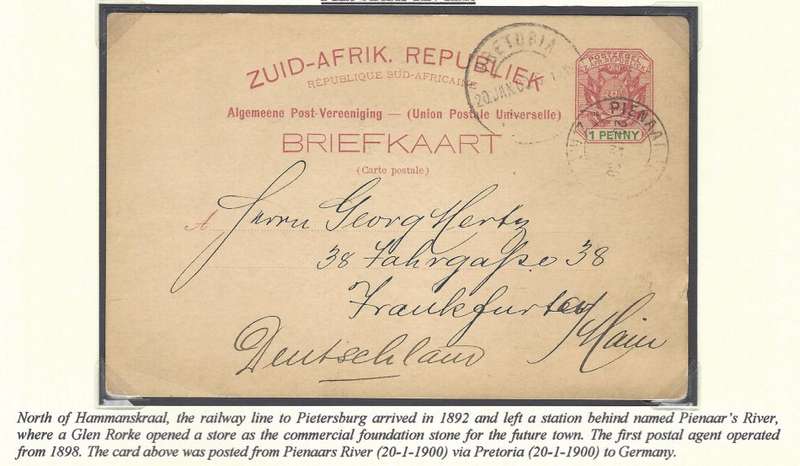 ZUID-AFRIK. REPUBLIEK
RÉPUBLIQUE SUD-AFRICAINE
Algemeene Post-Vereeniging — (Union Postale Universelle)
BRIEFKAART
(Carte postale)
PRETORIA
20.JAN.
POSTZEGEL
1 PENNY
PIENAAR
A Herrn Georg Hertz
38 Fahrgaſse 38
Frankfurt a/
Main
Deutschland
North of Hammanskraal, the railway line to Pietersburg arrived in 1892 and left a station behind named Pienaar's River,
where a Glen Rorke opened a store as the commercial foundation stone for the future town. The first postal agent operated
from 1898. The card above was posted from Pienaars River (20-1-1900) via Pretoria (20-1-1900) to Germany.